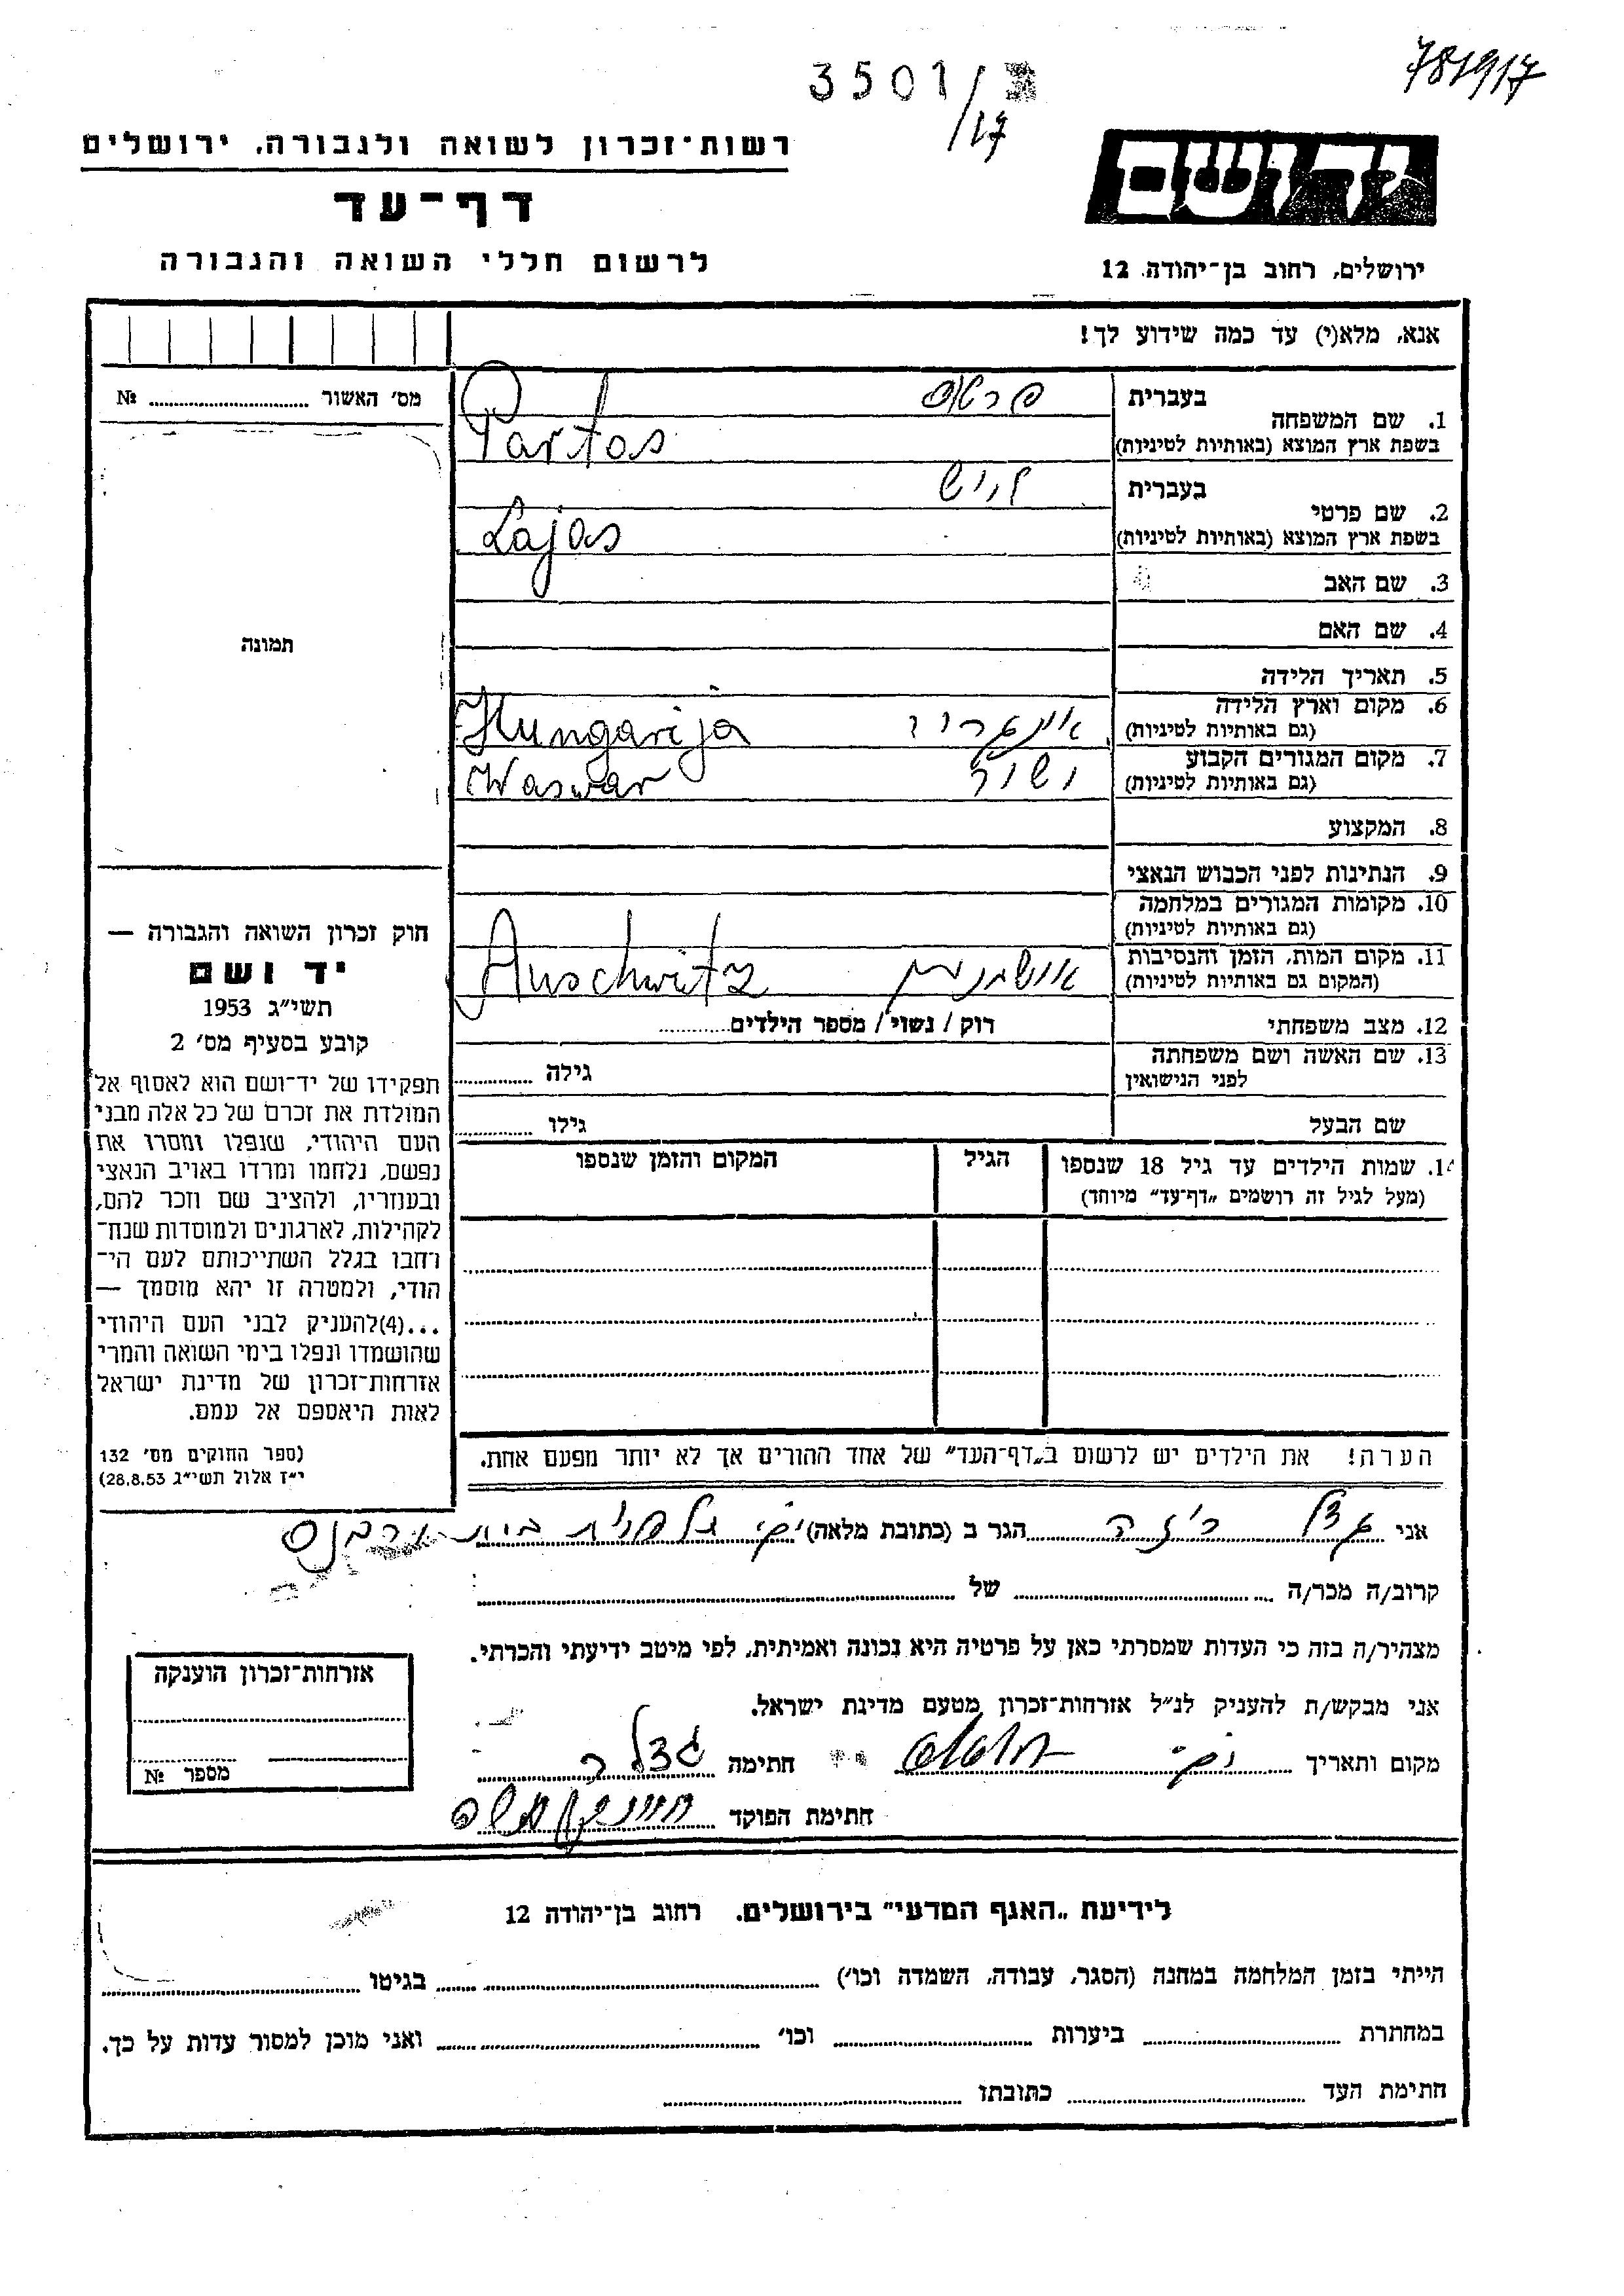 3501/3
/17
781917
יד ושם
רשות־זכרון לשואה ולגבורה, ירושלים
דף־עד
לרשום חללי השואה והגבורה
ירושלים, רחוב בן־יהודה 12
אנא, מלא(י) עד כמה שידוע לך!
מס׳ האשור № ........
תמונה
בעברית פרטוש
1. שם המשפחה
בשפת ארץ המוצא (באותיות לטיניות) Partos
בעברית לויש
2. שם פרטי
בשפת ארץ המוצא (באותיות לטיניות) Lajos
3. שם האב
4. שם האם
5. תאריך הלידה
6. מקום וארץ הלידה
(גם באותיות לטיניות) Hungarija
7. מקום המגורים הקבוע
(גם באותיות לטיניות) ושור Waswar
8. המקצוע
9. הנתינות לפני הכבוש הנאצי
10. מקומות המגורים במלחמה
(גם באותיות לטיניות)
11. מקום המות, הזמן והנסיבות
(המקום גם באותיות לטיניות) Auschwitz
12. מצב משפחתי רוק / נשוי / מספר הילדים........
13. שם האשה ושם משפחתה
לפני הנישואין גילה ........
שם הבעל גילו ........
14. שמות הילדים עד גיל 18 שנספו הגיל המקום והזמן שנספו
(מעל לגיל זה רושמים „דף־עד״ מיוחד)
חוק זכרון השואה והגבורה —
יד ושם
תשי״ג 1953
קובע בסעיף מס׳ 2
תפקידו של יד־ושם הוא לאסוף אל
המולדת את זכרם של כל אלה מבני
העם היהודי, שנפלו ומסרו את
נפשם, נלחמו ומרדו באויב הנאצי
ובעוזריו, ולהציב שם וזכר להם,
לקהילות, לארגונים ולמוסדות שנח־
רחבו בגלל השתייכותם לעם הי־
הודי, ולמטרה זו יהא מוסמך —
...(4)להעניק לבני העם היהודי
שהושמדו ונפלו בימי השואה והמרי
אזרחות־זכרון של מדינת ישראל
לאות היאספם אל עמם.
(ספר החוקים מס׳ 132
י״ז אלול תשי״ג 28.8.53)
הערה! את הילדים יש לרשום ב„דף־העד״ של אחד ההורים אך לא יותר מפעם אחת.
אני הגר ב (כתובת מלאה)
קרוב/ה מכר/ה ........ של ........
מצהיר/ה בזה כי העדות שמסרתי כאן על פרטיה היא נכונה ואמיתית, לפי מיטב ידיעתי והכרתי.
אני מבקש/ת להעניק לנ״ל אזרחות־זכרון מטעם מדינת ישראל.
מקום ותאריך חתימה
חתימת הפוקד
אזרחות־זכרון הוענקה
מספר №
לידיעת „האגף המדעי״ בירושלים. רחוב בן־יהודה 12
הייתי בזמן המלחמה במחנה (הסגר, עבודה, השמדה וכו׳) ........ בגיטו ........
במחתרת ........ ביערות ........ וכו׳ ........ ואני מוכן למסור עדות על כך.
חתימת העד ........ כתובתו ........